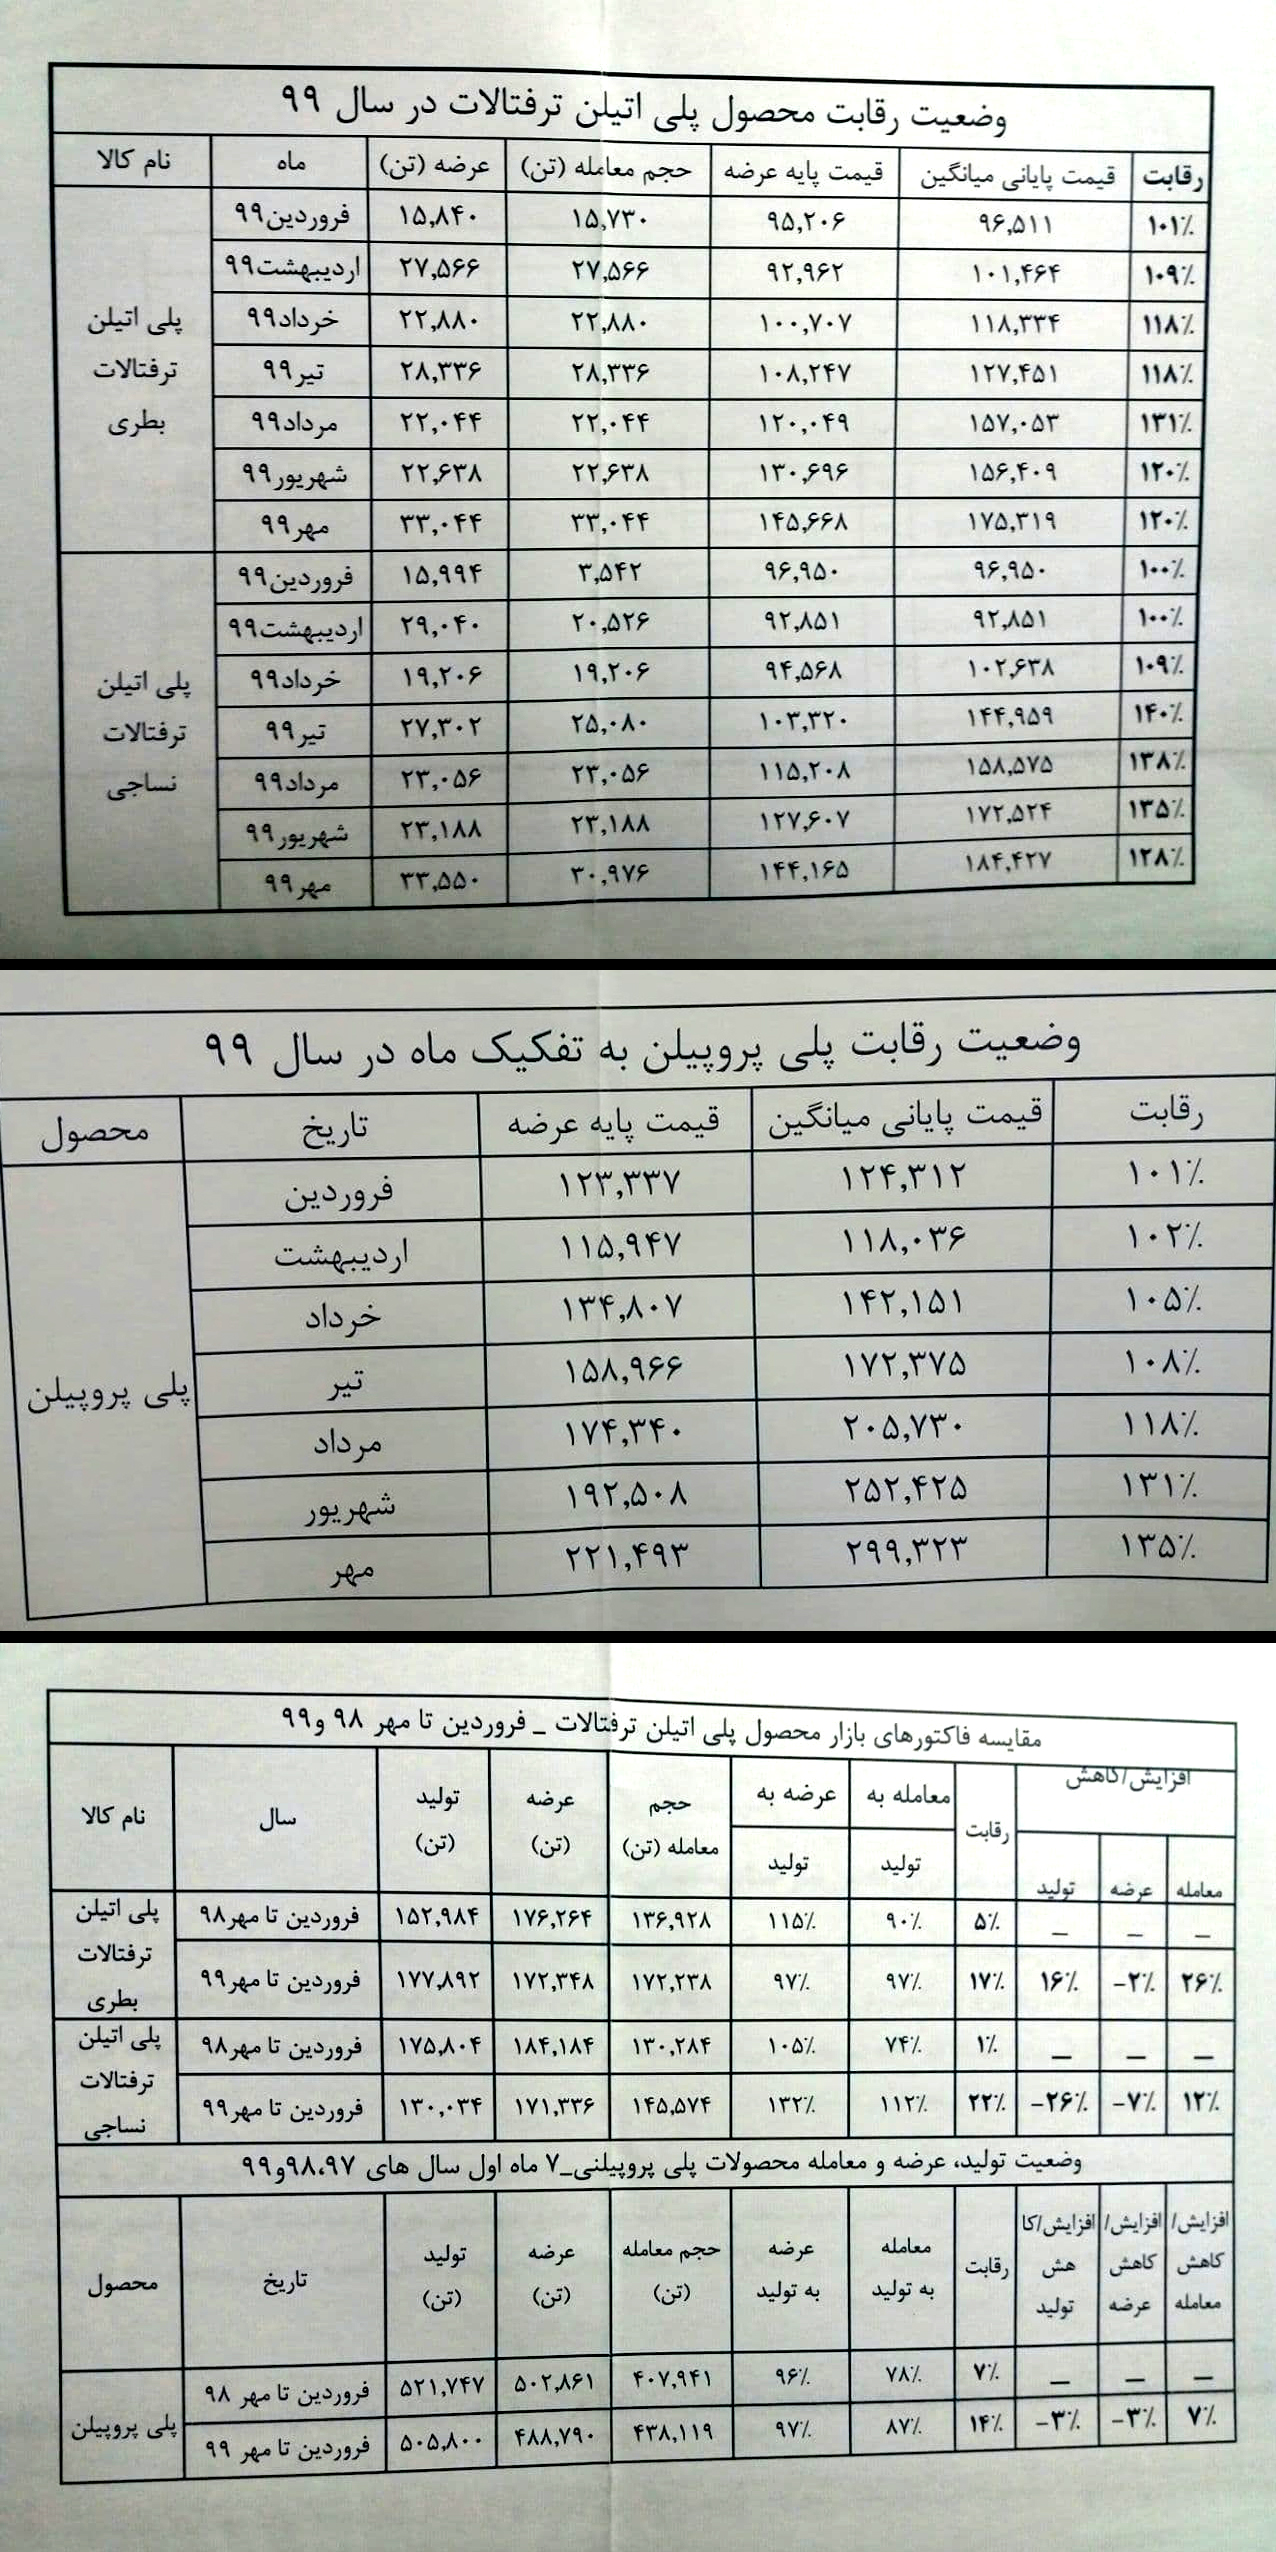 وضعیت رقابت محصول پلی اتیلن ترفتالات در سال ۹۹
نام کالا ماه عرضه (تن) حجم معامله (تن) قیمت پایه عرضه قیمت پایانی میانگین رقابت
پلی اتیلن ترفتالات بطری
فروردین۹۹ ۱۵,۸۴۰ ۱۵,۷۳۰ ۹۵,۲۰۶ ۹۶,۵۱۱ ۱۰۱٪
اردیبهشت۹۹ ۲۷,۵۶۶ ۲۷,۵۶۶ ۹۲,۹۶۲ ۱۰۱,۴۶۴ ۱۰۹٪
خرداد۹۹ ۲۲,۸۸۰ ۲۲,۸۸۰ ۱۰۰,۷۰۷ ۱۱۸,۳۳۴ ۱۱۸٪
تیر۹۹ ۲۸,۳۳۶ ۲۸,۳۳۶ ۱۰۸,۲۴۷ ۱۲۷,۴۵۱ ۱۱۸٪
مرداد۹۹ ۲۲,۰۴۴ ۲۲,۰۴۴ ۱۲۰,۰۴۹ ۱۵۷,۰۵۳ ۱۳۱٪
شهریور۹۹ ۲۲,۶۳۸ ۲۲,۶۳۸ ۱۳۰,۶۹۶ ۱۵۶,۴۰۹ ۱۲۰٪
مهر۹۹ ۳۳,۰۴۴ ۳۳,۰۴۴ ۱۴۵,۶۶۸ ۱۷۵,۳۱۹ ۱۲۰٪
پلی اتیلن ترفتالات نساجی
فروردین۹۹ ۱۵,۹۹۴ ۳,۵۴۲ ۹۶,۹۵۰ ۹۶,۹۵۰ ۱۰۰٪
اردیبهشت۹۹ ۲۹,۰۴۰ ۲۰,۵۲۶ ۹۲,۸۵۱ ۹۲,۸۵۱ ۱۰۰٪
خرداد۹۹ ۱۹,۲۰۶ ۱۹,۲۰۶ ۹۴,۵۶۸ ۱۰۲,۶۳۸ ۱۰۹٪
تیر۹۹ ۲۷,۳۰۲ ۲۵,۰۸۰ ۱۰۳,۳۲۰ ۱۴۴,۹۵۹ ۱۴۰٪
مرداد۹۹ ۲۳,۰۵۶ ۲۳,۰۵۶ ۱۱۵,۲۰۸ ۱۵۸,۵۷۵ ۱۳۸٪
شهریور۹۹ ۲۳,۱۸۸ ۲۳,۱۸۸ ۱۲۷,۶۰۷ ۱۷۲,۵۲۴ ۱۳۵٪
مهر۹۹ ۳۳,۵۵۰ ۳۰,۹۷۶ ۱۴۴,۱۶۵ ۱۸۴,۴۲۷ ۱۲۸٪
وضعیت رقابت پلی پروپیلن به تفکیک ماه در سال ۹۹
محصول تاریخ قیمت پایه عرضه قیمت پایانی میانگین رقابت
پلی پروپیلن
فروردین ۱۲۳,۳۳۷ ۱۲۴,۳۱۲ ۱۰۱٪
اردیبهشت ۱۱۵,۹۴۷ ۱۱۸,۰۳۶ ۱۰۲٪
خرداد ۱۳۴,۸۰۷ ۱۴۲,۱۵۱ ۱۰۵٪
تیر ۱۵۸,۹۶۶ ۱۷۲,۳۷۵ ۱۰۸٪
مرداد ۱۷۴,۳۴۰ ۲۰۵,۷۳۰ ۱۱۸٪
شهریور ۱۹۲,۵۰۸ ۲۵۲,۴۲۵ ۱۳۱٪
مهر ۲۲۱,۴۹۳ ۲۹۹,۳۲۳ ۱۳۵٪
مقایسه فاکتورهای بازار محصول پلی اتیلن ترفتالات _ فروردین تا مهر ۹۸ و۹۹
نام کالا سال تولید (تن) عرضه (تن) حجم معامله (تن) عرضه به تولید معامله به تولید رقابت افزایش/کاهش
تولید عرضه معامله
پلی اتیلن ترفتالات بطری
فروردین تا مهر۹۸ ۱۵۲,۹۸۴ ۱۷۶,۲۶۴ ۱۳۶,۹۲۸ ۱۱۵٪ ۹۰٪ ۵٪ _ _ _
فروردین تا مهر۹۹ ۱۷۷,۸۹۲ ۱۷۲,۳۴۸ ۱۷۲,۲۳۸ ۹۷٪ ۹۷٪ ۱۷٪ ۱۶٪ -۲٪ ۲۶٪
پلی اتیلن ترفتالات نساجی
فروردین تا مهر۹۸ ۱۷۵,۸۰۴ ۱۸۴,۱۸۴ ۱۳۰,۲۸۴ ۱۰۵٪ ۷۴٪ ۱٪ _ _ _
فروردین تا مهر۹۹ ۱۳۰,۰۳۴ ۱۷۱,۳۳۶ ۱۴۵,۵۷۴ ۱۳۲٪ ۱۱۲٪ ۲۲٪ -۲۶٪ -۷٪ ۱۲٪
وضعیت تولید، عرضه و معامله محصولات پلی پروپیلنی_۷ ماه اول سال های ۹۸،۹۷و۹۹
محصول تاریخ تولید (تن) عرضه (تن) حجم معامله (تن) عرضه به تولید معامله به تولید رقابت افزایش/کا هش تولید افزایش/ کاهش عرضه افزایش/ کاهش معامله
پلی پروپیلن
فروردین تا مهر ۹۸ ۵۲۱,۷۴۷ ۵۰۲,۸۶۱ ۴۰۷,۹۴۱ ۹۶٪ ۷۸٪ ۷٪ _ _ _
فروردین تا مهر ۹۹ ۵۰۵,۸۰۰ ۴۸۸,۷۹۰ ۴۳۸,۱۱۹ ۹۷٪ ۸۷٪ ۱۴٪ -۳٪ -۳٪ ۷٪